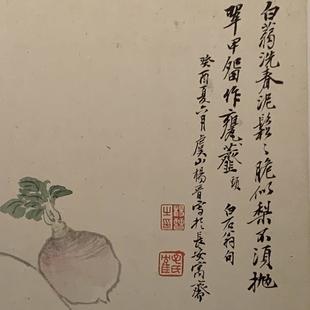 白蒻洗春泥鬆々脆似梨不須拋
翠甲留作甕虀頭 白石翁句
癸酉夏六月虞山楊晉寫於長安寓齋